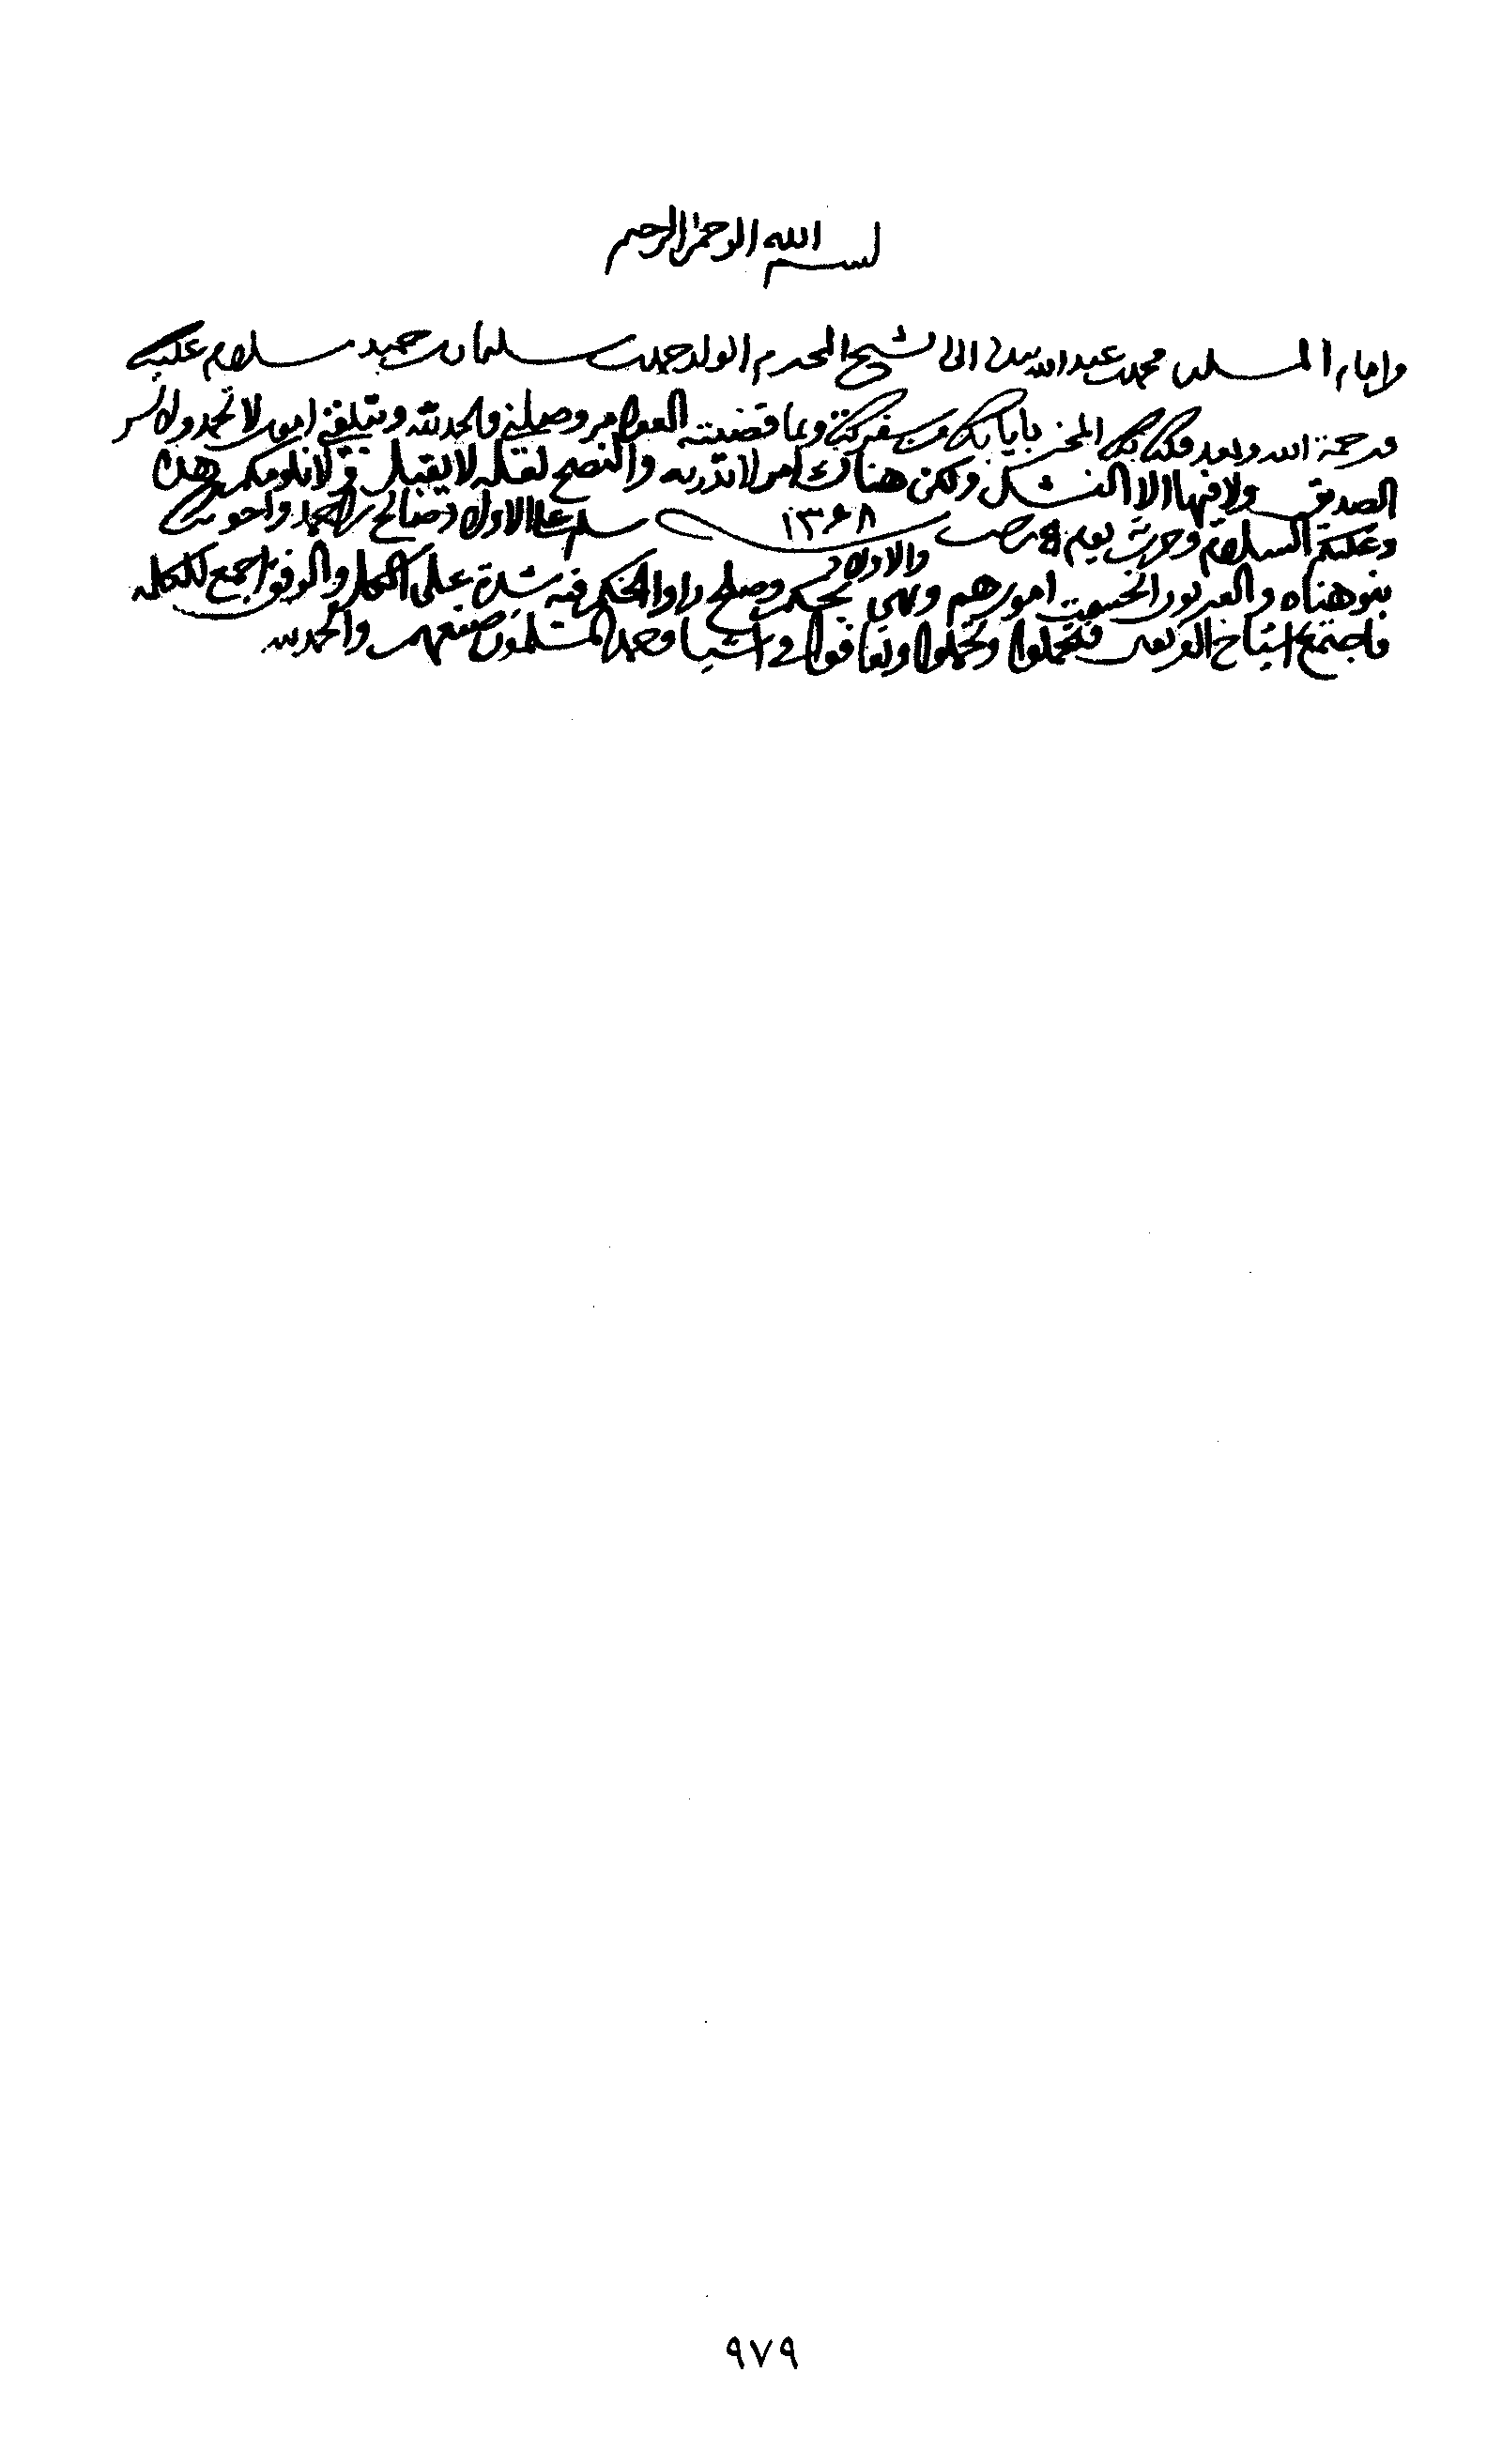 بسم الله الرحمن الرحيم
وإمام المسلمين محمد بن عبد الله بيده إلى الشيخ المحترم الولد حمد بن سليمان بن حميد سلام عليك
ورحمة الله وبعد فكتابك المخبر بايابك من سفرك وبما قضيته العوامر وصلني والحمد لله ونتلقى امور لا تحمد ولا تسر
الصديق ولا فيها الا الفشل ولكن هناك امر لا ندريه والنصح لعله لا يقبل هذا
وعليك السلام وحررت يوم رجب ١٣٦٨ سلم على الاولاد صالح واحمد واخوتك
والاولاد
بنو هناه والعبريون انحسمت امورهم وهي بحكم وصلح راوا الحكم فيه شدة على الكل والوفق اجمع للكلمه
فاجتمع اشياخ الفريقين فتحملوا وتحملوا وتعافوا في اشيا وحمد المسلمون صنيعهم والحمد لله
٩٧٩